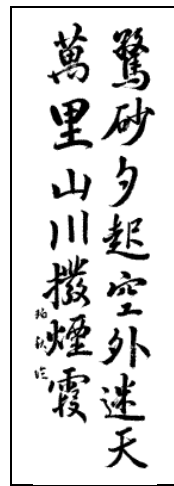 驚砂夕起空外迷天
萬里山川撥煙霞